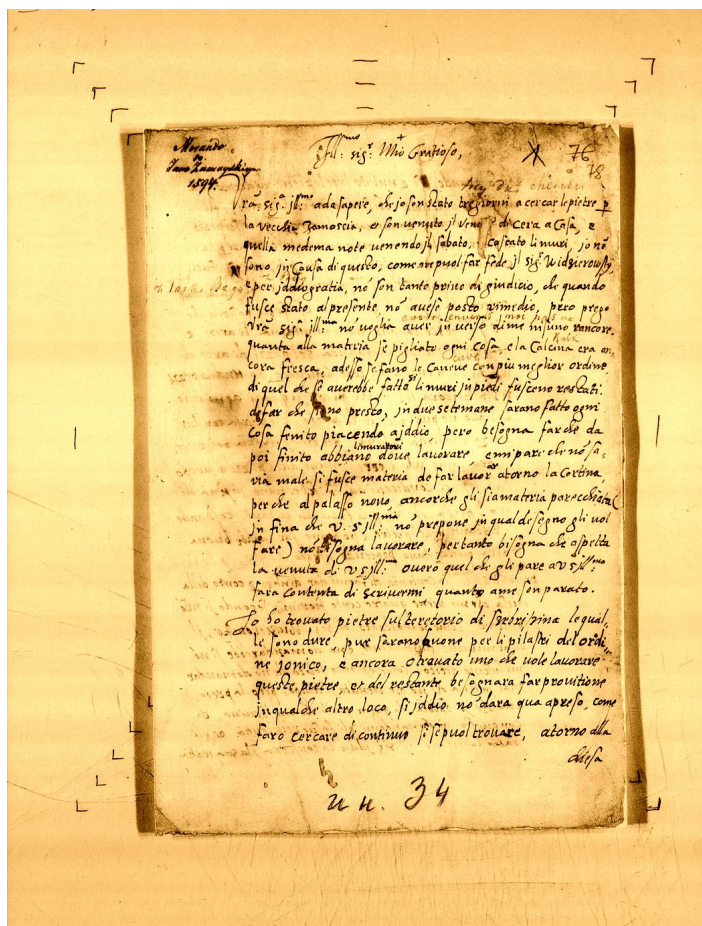 Morando
do
Jana Zamoyskiego
1594.
Ill:mo sig:r Mio Gratioso,
76
78
Vra: sig:a jll:ma ada sapere, che jo son stato tre giorni a cercar le pietre p
la vecchia Zamoscia, e son venuto jl di Cera a Casa, e
quella medema note venendo jl sabato, Cascato li muri, jo nõ
sono jn Causa di questo, come ne puol far fede jl sig:r
e per jddio gratia, nõ son tanto privo di giudicio, che quando
fusce stato al presente, nõ avese posto rimedio, pero prego
Vra: sig: jll:ma nõ voglia aver jn verso di me nisuno rancore.
quanta alla materia se pigliato ogni Cosa, e la Calcina era an,
cora fresca, adesso se fano le Caneve con piu meglior ordine
di quel che se averebbe fatto si li muri jn piedi fusceno restati.
de far che siano presto, jn due setemane sarano fatto ogni
Cosa fenito piacendo a jddio, pero besogna far che da
poi finito abbiano li muratori dove lavorare, e mi pare che nõ sa,
ria male si fusce materia de far lavorar atorno la Cortina,
per che al palasso novo ancorche gli sia materia parecchiata (
jn fina che V. S jll:ma nõ prepone jn qual desegno gli vol
fare) nõ bisogna lavorare, per tanto bisogna che aspetta
la venuta di V S jll:ma overo quel che gli pare a V S jll:ma
fara Contenta di scrivermi quanto a me son parato.
Jo ho trovato pietre sul teretorio di le qual,
le sono dure, pur sarano buone per li pilastri del ordi,
ne jonico, e ancora o travato uno che vole lavorare
queste pietre, et del restante besognara far provitione
jn qualche altro loco, si jddio nõ dara qua apreso, come
faro cercare di continuo si se puol trovare, atorno alla
chiesa
n u. 34